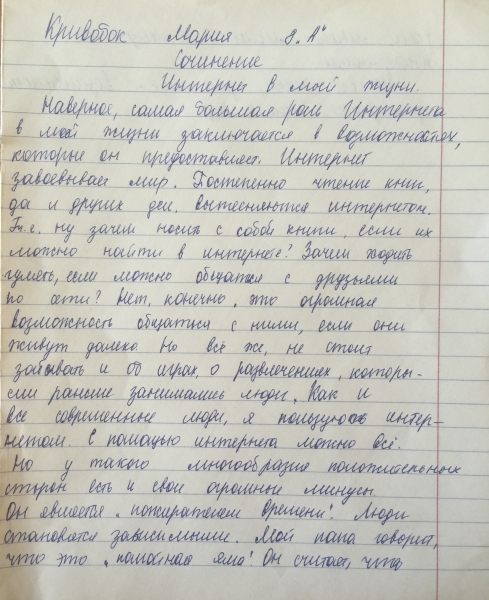 Кривобок Мария 9 „А"
Сочинение
Интернет в моей жизни.
Наверное, самая большая роль Интернета
в моей жизни заключается в возможностях,
которые он предоставляет. Интернет
завоевывает мир. Постепенно чтение книг,
да и других дел, вытесняются интернетом.
Т.е. ну зачем носить с собой книги, если их
можно найти в интернете? Зачем ходить
гулять, если можно общаться с друзьями
по сети? Нет, конечно, это огромная
возможность общаться с ними, если они
живут далеко. Но всё же, не стоит
забывать и об играх, о развлечениях, которы-
ми раньше занимались люди. Как и
все современные люди, я пользуюсь интер-
нетом. С помощью интернета можно всё.
Но у такого многообразия положительных
сторон есть и свои огромные минусы.
Он является „пожирателем времени". Люди
становятся зависимыми. Мой папа говорит,
что это „помойная яма". Он считает, что